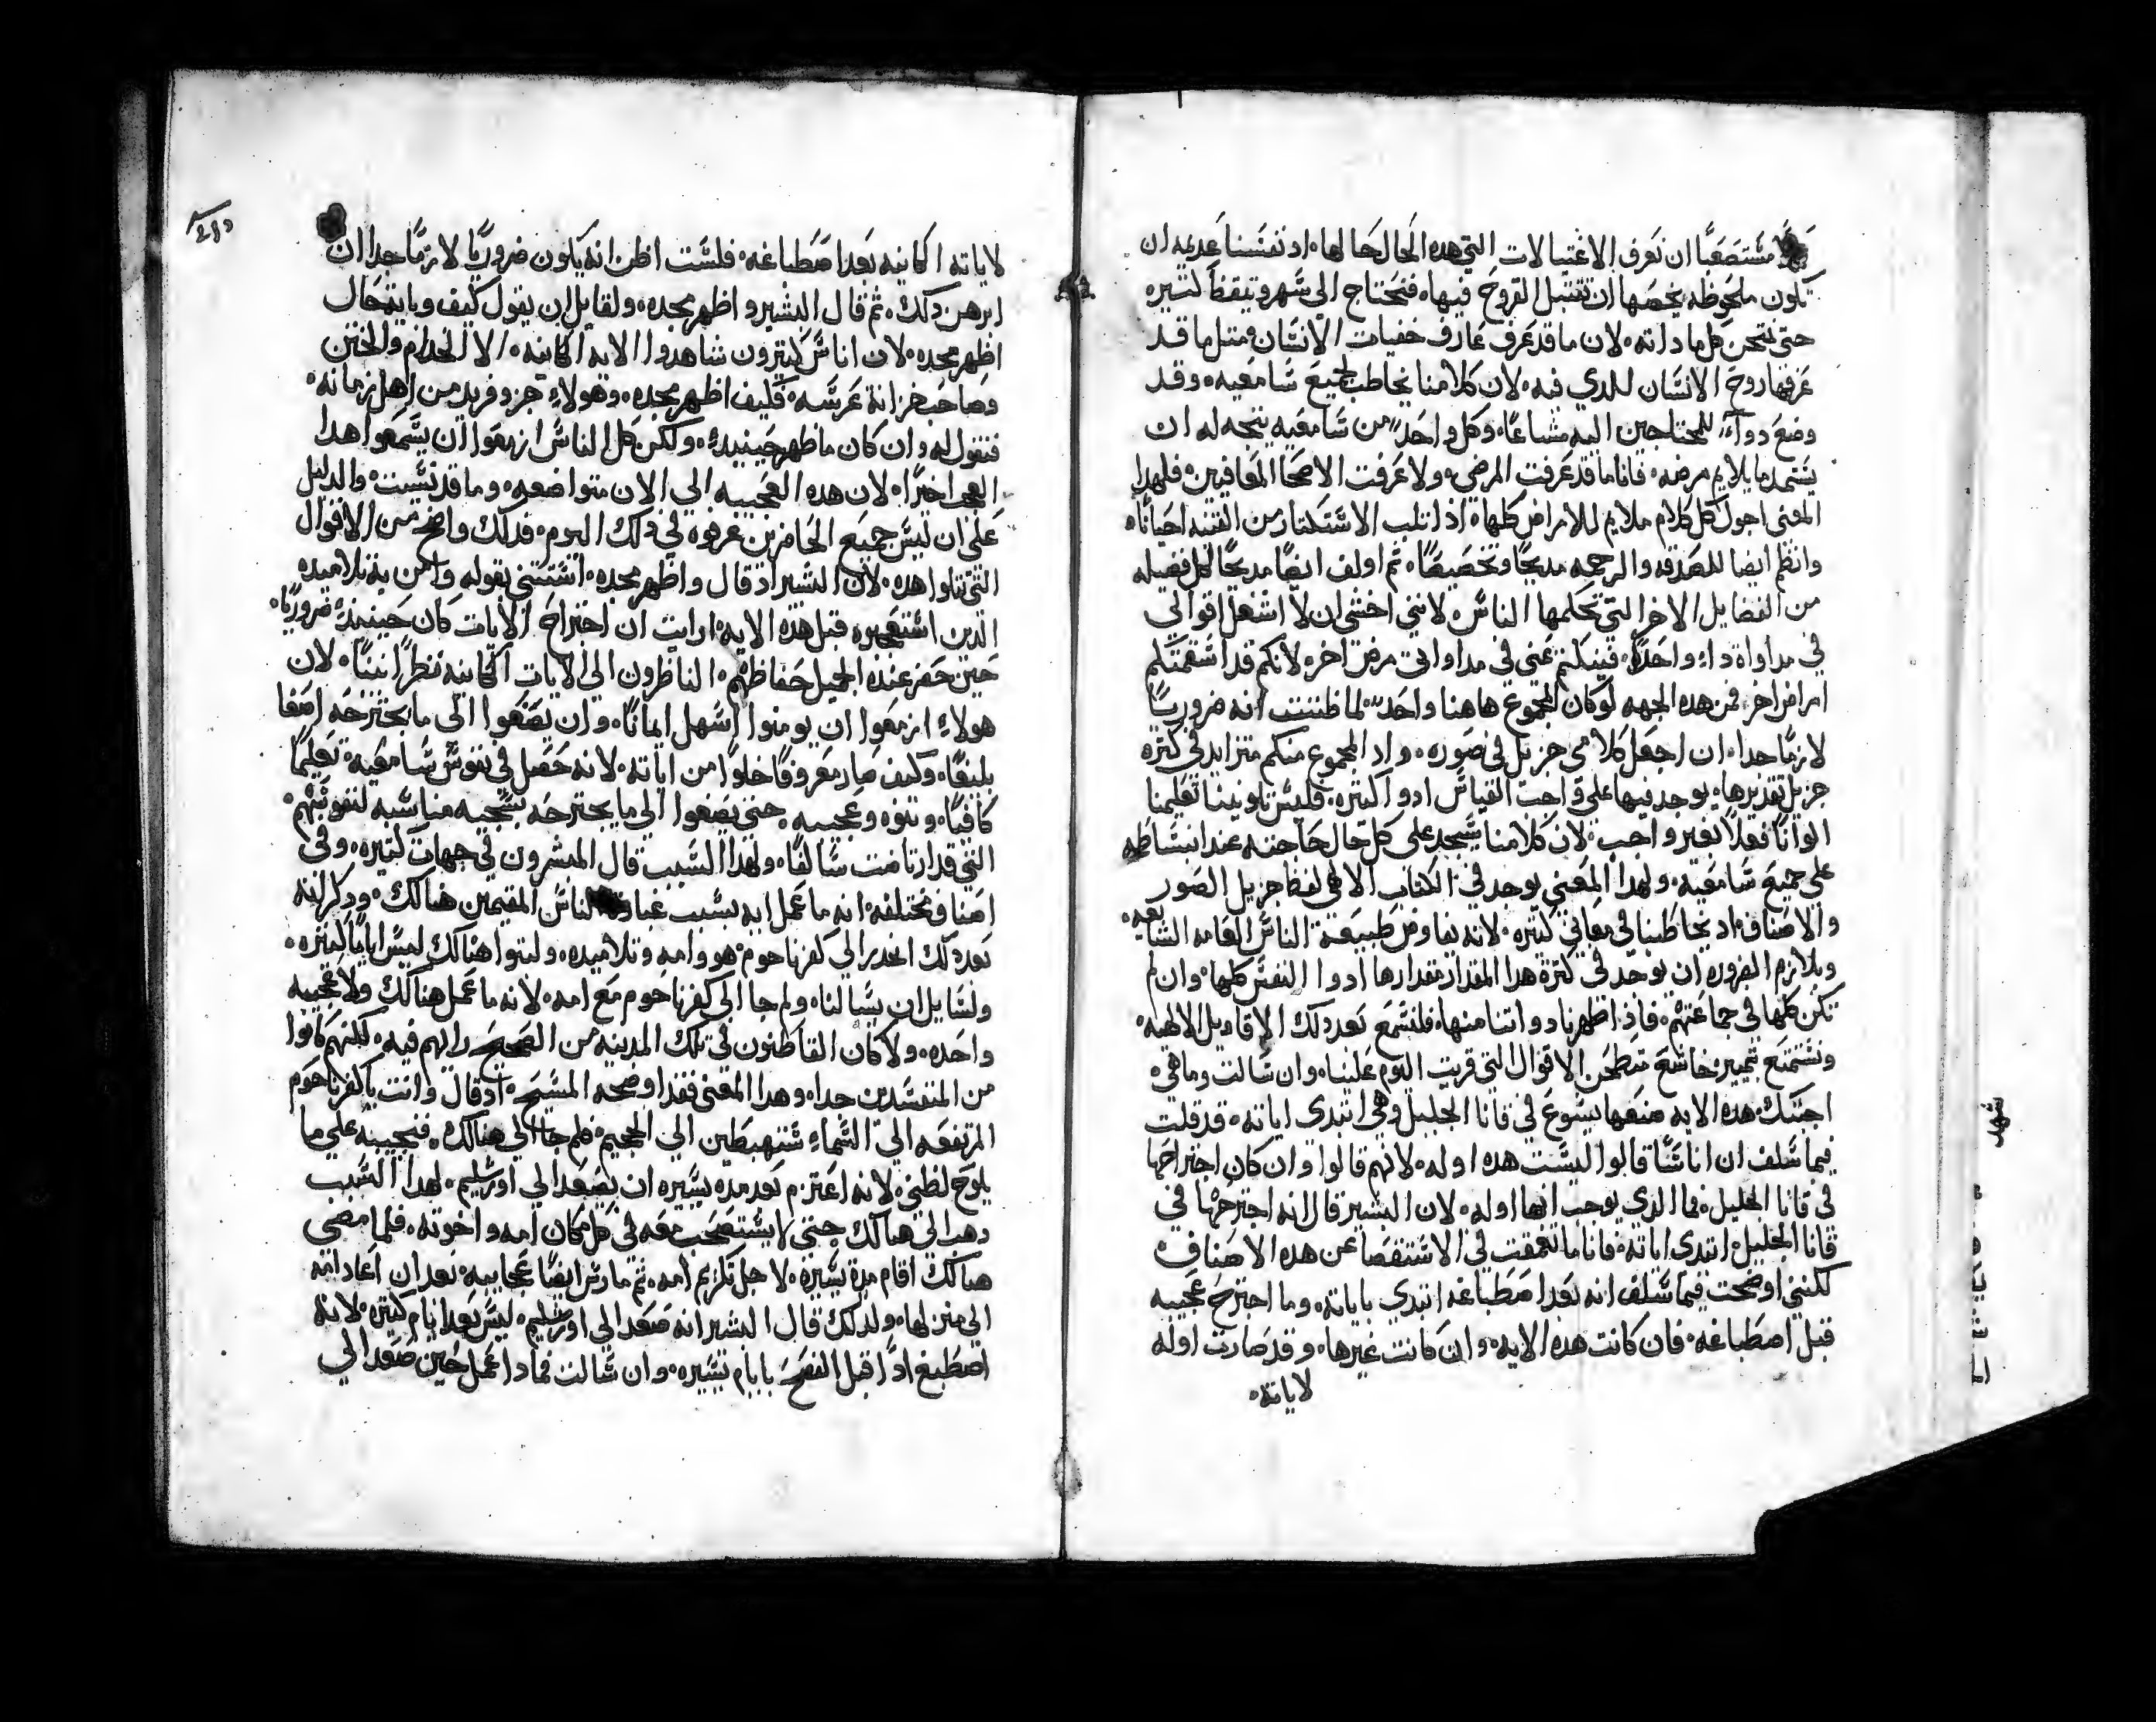 مستصعبًا ان نعرف الاغتيالات التي هذه الحال حالها، اذ نفسنا عديمه ان
تكون ملحوظه يخصها ان تقتبل القروح فيها، فنحتاج الي سهر وتيقظ كثيره
حتي نتحن كل ما ذاته، لان ما قد عرف عارف خفيات الانسان مثل ما قد
عرفها روح الانسان للذي فيه، لان كلامنا يخاطب جميع سامعيه، وقد
وضع دوآء للمحتاجين اليه مشاعًا، وكل واحد من سامعيه يتجه له ان
يستمد ما يلايم مرضه، فانا ما قد عرفت المرضي، ولا عرفت الاصحا المعافيين، فلهذا
المعني اجول كل كلام ملايم للامراض كلها، اذ اثلب الاستكثار من القنيه احيانًا،
وانظم ايضا للصدقه والرحمه مديحًا وتحضيضًا، ثم اولف ايضًا مديحًا لكل فضيله
من الفضايل الاخر التي تحكمها الناس، لانني اخشي ان لا اشغل اقوالي
في مداواة داء واحدًا، فينكتم عني في مداواتي مرض اخر، لانكم قد اسقمتكم
امراض اخر، فمن هذه الجهه لو كان المجموع هاهنا واحد، لما ظننت انه ضروريًا
لازمًا جدا، ان اجعل كلامي جزيل في صوره، واذ المجموع منكم متزايد في كثره
جزيل تقديرها، يوجد فيها علي واجب القياس ادوا كثيره، فليس تلويننا تعليمنا
الوانًا فعلاً بغير واجب، لان كلامنا سيجد علي كل حال حاجته عند انبساطه
علي جميع سامعيه، ولهذا المعني يوجد في الكتاب الالاهي لفظا جزيل الصور
والاصناف، اذ يخاطبنا في معاني كثيره، لانه يفاوض طبيعة الناس العامه الشايعه،
ويلازم الضروره ان يوجد في كثرة هذا المقدار مقدارها ادوا النفس كلها، وان لم
تكن كلها في جماعتهم، فاذ اظهرنا دواتنا منها، فلنسمع بعد ذلك الاقاويل الالهيه،
ونستمتع بتمييز خاشع متطحن الاقوال التي قريت اليوم علينا، وان سالت وما هي،
اجبتك، هذه الايه صنعها يسوع في قانا الجليل وهي ابتدي اياته، قد قلت
فيما سلف ان اناسًا قالوا ليست هذه اوله، لانهم قالوا وان كان اجتراحها
في قانا الجليل، فما الذي يوجب انها اوله، لان البشير قال انه اجترحها في
قانا الجليل ابتدي اياته، فانا ما تعمقت في الاستقصا عن هذه الاصناف
لكنني اوضحت فيما سلف انه بعد اصطباغه ابتدي باياته، وما اجترح عجيبه
قبل اصطباغه، فان كانت هذه الايه، وان كانت غيرها، وقد صارت اوله
لاياته،
شهد
لاياته الكاينه بعد اصطباغه، فلست اظن انه يكون ضروريًا لازمًا جدا ان
ابرهن ذلك، ثم قال البشير واظهر مجده، ولقايل ان يقول كيف وبايتحال
اظهر مجده، لان اناس كثيرون شاهدوا الايه الكاينه، الا الخدام والختن
وصاحب خزانة عرسه، فكيف اظهر مجده، وهولاء جزو فريد من اهل زمانه،
فنقول له وان كان ما ظهر حينيذ، ولكن كل الناس ازمعوا ان يسمعوا هذا
العجب اخيرًا، لان هذه العجيبه الي الان متواضعه، وما قد نسيت، والدليل
علي ان ليس جميع الحاضرين عرفوه في ذلك اليوم، فذلك واضح من الاقوال
التي تتلوا هذه، لان البشير اذ قال واظهر مجده، استثني بقوله وآمن به تلاميذه
الذين استعجبوه قبل هذه الايه، ارايت ان اجتراح الايات كان حينيذ ضروريًا،
حين حضر عنده الجميل حفاظهم، الناظرون الي الايات الكاينه نظرًا بينًا، لان
هولاء ازمعوا ان يومنوا اسهل ايمانًا، وان يصغوا الي ما يجترحه اصغا
بليغًا، وكيف صار معروفًا خلوًا من اياته، لانه حصل في نفوس سامعيه تعليمًا
كافيًا، ونبوه وعجيبه، حتي يصغوا الي ما يجترحه بسجيه مناسبه لنفوسهم،
التي قد ارتاضت سالفًا، ولهذا السبب قال المبشرون في جهات كثيره، وفي
اصناف مختلفه، انه ما عمل ايه بسبب غباوة الناس المقيمين هنالك، وذكر انه
بعد ذلك انحدر الي كفرناحوم، هو وامه وتلاميذه، ولبتوا هنالك ليس ايامًا كثيره،
ولسايل ان يسالنا، ولم جا الي كفرناحوم مع امه، لانه ما عمل هنالك ولا عجيبه
واحده، ولا كان القاطنون في تلك المدينه من الصحيح رايهم فيه، لكنهم كانوا
من المتفسدين جدا، وهذا المعني فقد اوضحه المسيح، اذ قال وانت يا كفرناحوم
المرتفعه الي السماء ستهبطين الي الجحيم، فلم جا الي هنالك، فنجيبه علي ما
يلوح لظني، لانه اعتزم بعد مده يسيره ان يصعد الي اورشليم، لهذا السبب
ذهب الي هنالك حتي لا يستصحب معه في كل مكان امه واخوته، فلما مضي
هنالك اقام مدة يسيرة، لاجل تكريم امه، ثم مارس ايضًا عجايبه، بعد ان اعاد امه
الي منزلها، ولذلك قال البشير انه صعد الي اورشليم، ليس بعد ايام كثيره، لانه
اصطبغ اذًا قبل الفصح بايام يسيره، وان سالت فماذا عمل حين صعد الي